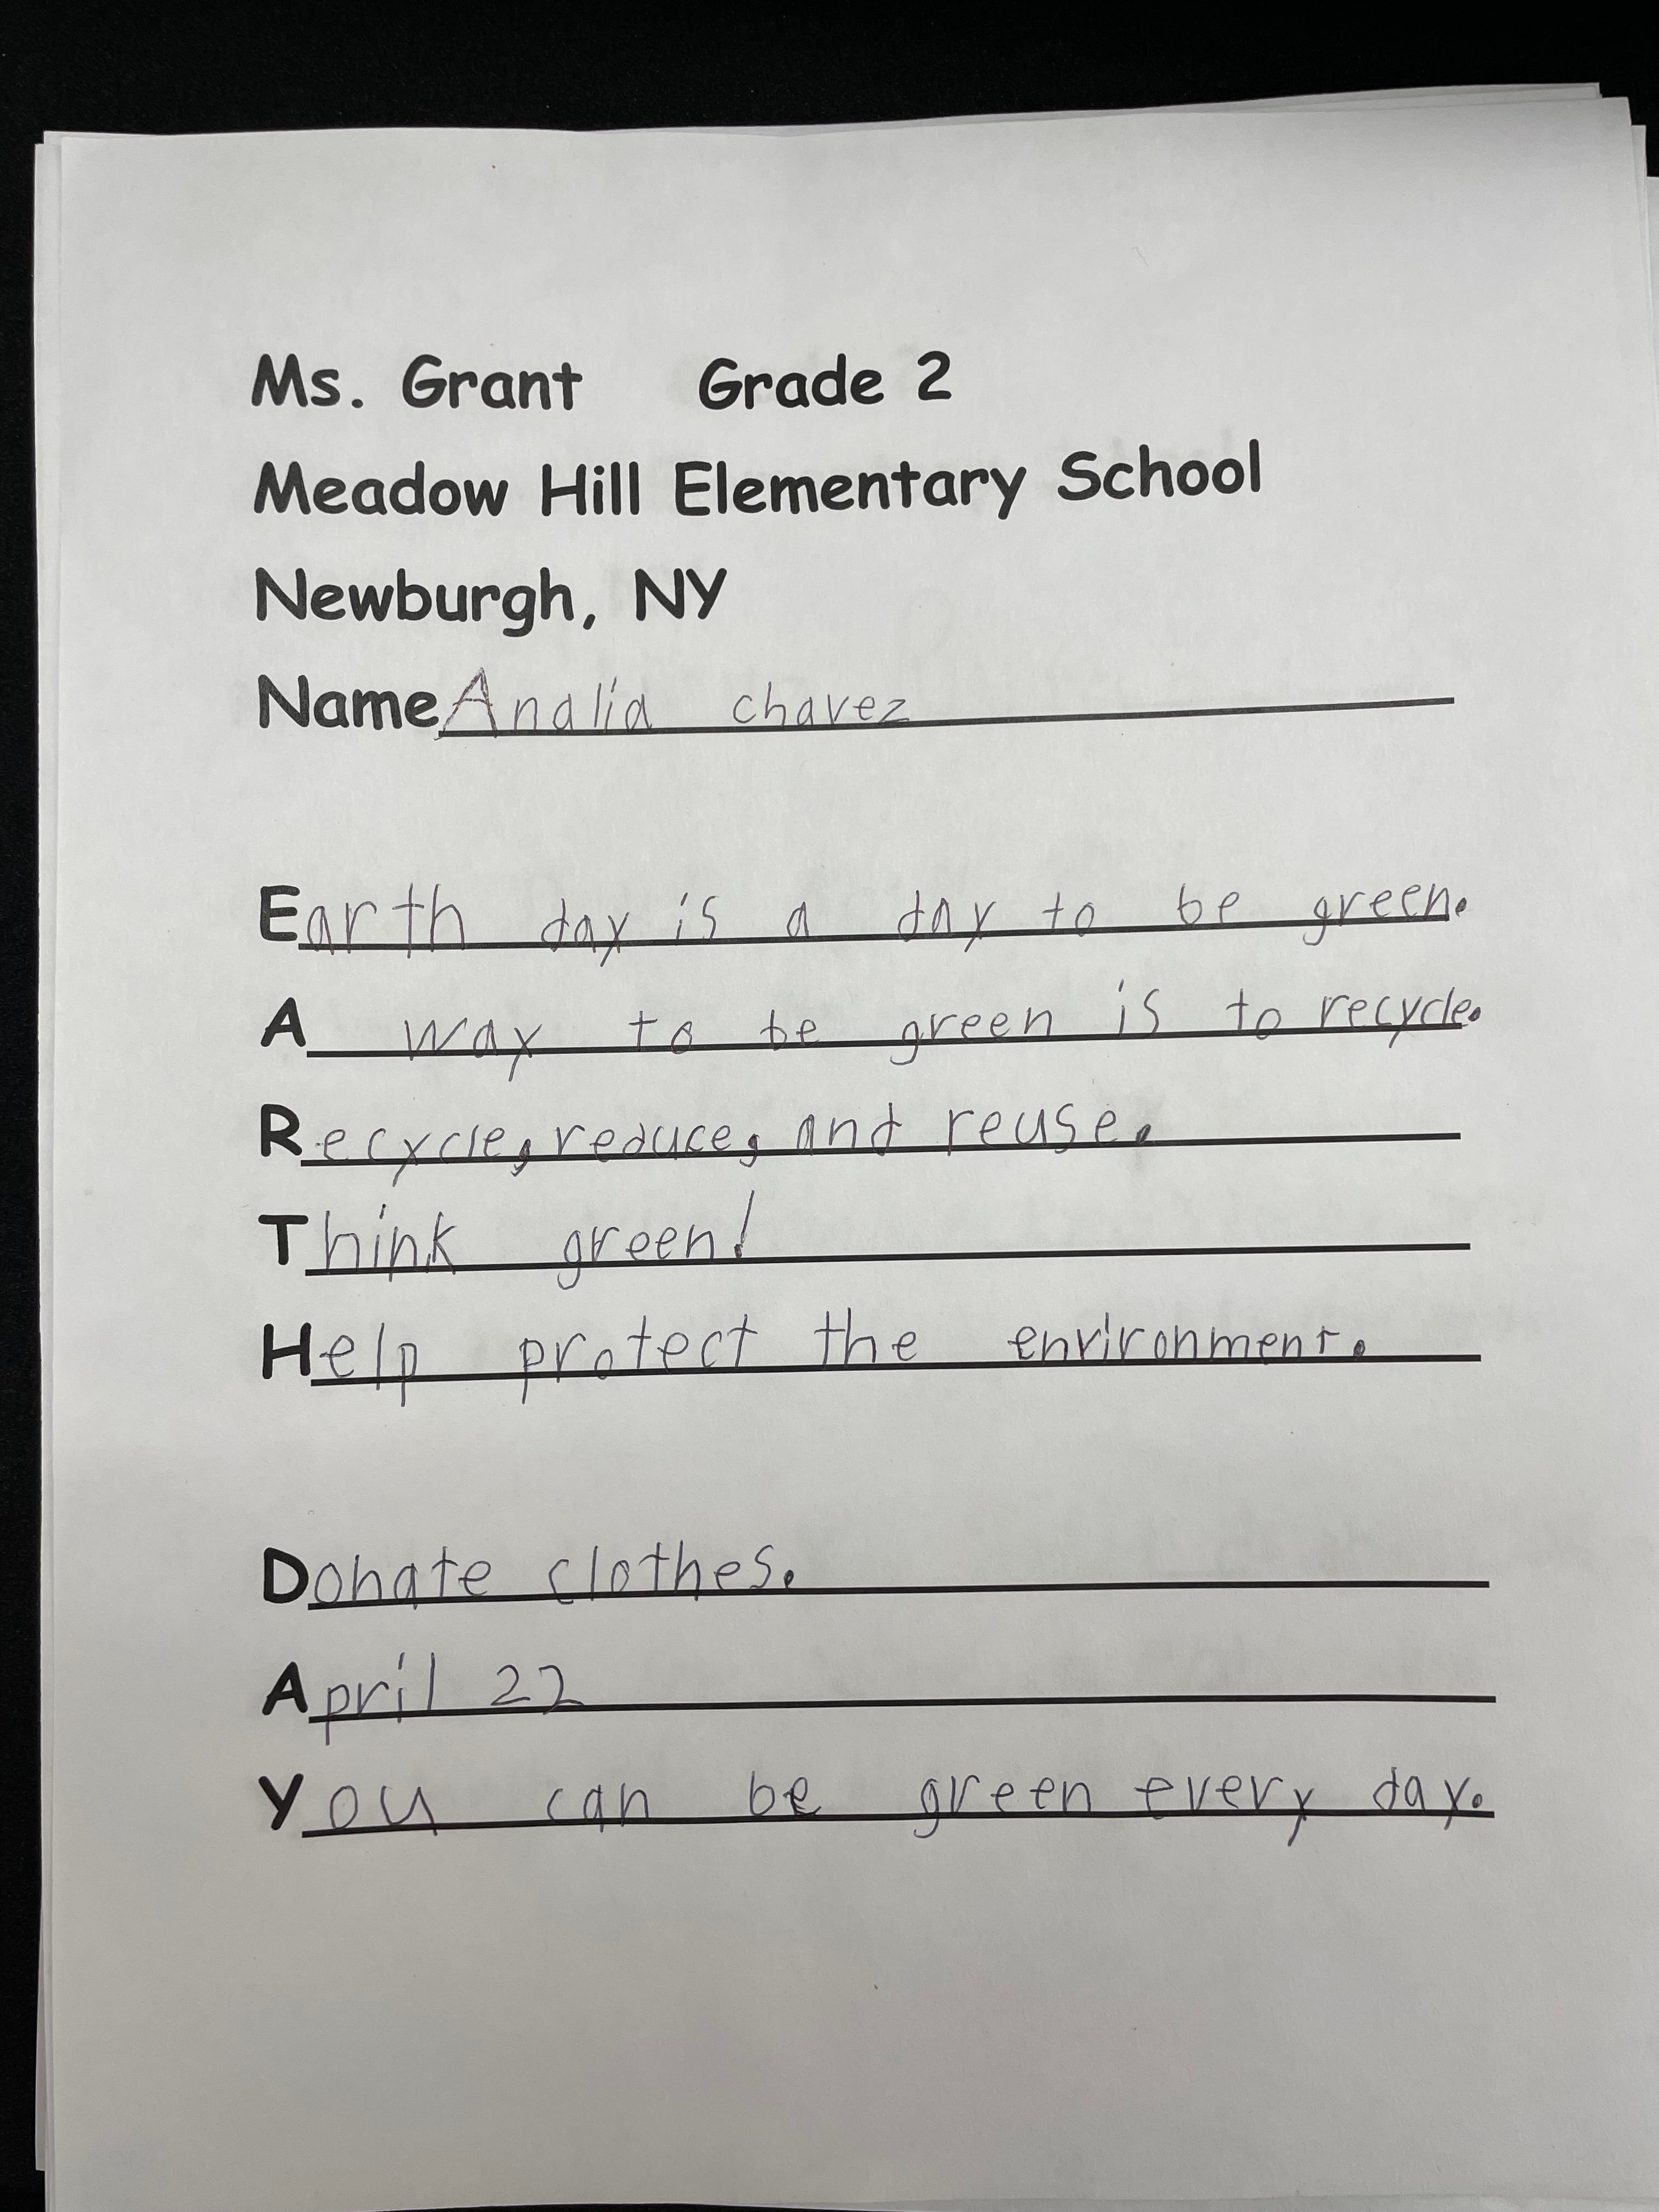 Ms. Grant Grade 2
Meadow Hill Elementary School
Newburgh, NY
Name Analia chavez
Earth day is a day to be green.
A way to be green is to recycle.
Recycle, reduce, and reuse.
Think green!
Help protect the environment.
Donate clothes.
April 22
You can be green every day.